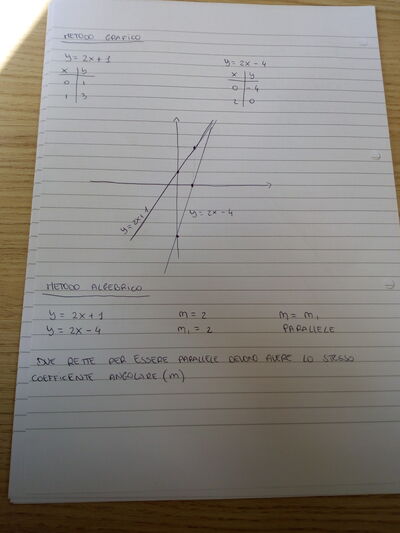 METODO GRAFICO
y = 2x + 1
x y
0 1
1 3
y = 2x - 4
x y
0 -4
2 0
y = 2x + 1
y = 2x - 4
METODO ALGEBRICO
y = 2x + 1 m = 2 m = m₁
y = 2x - 4 m₁ = 2 PARALLELE
DUE RETTE PER ESSERE PARALLELE DEVONO AVERE LO STESSO
COEFFICENTE ANGOLARE (m)